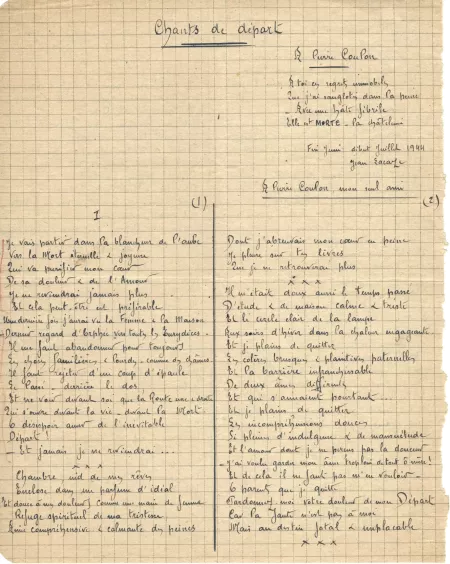 Chants de départ
à Pierre Coulon
à toi ces regrets immobiles
Que j'ai sanglotés dans la
Avec une hâte fébrile
Elle est MORTE - la châtelaine
Fin Juin, début Juillet 1944
Jean Lacaze
à Pierre Coulon mon seul ami
(1)
I
Je vais partir dans la blancheur de l'aube
Vers la Mort & joyeuse
Qui va purifier mon cœur
De sa douleur & de l'Amour
Je ne reviendrai jamais plus
Et cela peut être est préférable
Une dernière fois j'aurai vu la Femme & la Maison
Dernier regard d'Orphée vers toutes les Eurydices
Il me faut abandonner pour toujours
Ces choses familières & lourdes comme des chaînes
Il faut rejeter d'un coup d'épaule
Le Passé - derrière le dos
Et ne voir devant soi que la Route nue & droite
Qui s'ouvre devant la vie - devant la Mort
O désespoir amer de l'inévitable
Départ !
- Et jamais je ne reviendrai ...
Chambre, nid de mes rêves
Enclose dans un parfum d'idéal
Et douce à ma douleur comme une main de femme
Refuge spirituel de ma tristesse
Amie compréhensive & calmante des peines
(2)
Dont j'abreuvais mon cœur en peine
Je pleure sur tes livres
Que je ne retrouverai plus
Il m'était doux aussi le temps passé
D'étude & de maison calme & triste
Et le cercle clair de la lampe
Aux soirs d'hiver dans la chaleur engageante
Et je plains de quitter
Ces colères brusques & plaintives paternelles
Et la barrière infranchissable
De deux âmes différentes
Et qui s'aimaient pourtant ...
Et je plains de quitter
Ces incompréhensions douces
Si pleines d'indulgence & de mansuétude
Et l'amour dont je ne perçus pas la douceur
- J'ai voulu garder mon âme trop loin
Et de cela il ne faut pas m'en vouloir -
O parents que je quitte
Pardonnez-moi votre douleur de mon Départ
Car la Faute n'est pas à moi
Mais au destin fatal & implacable